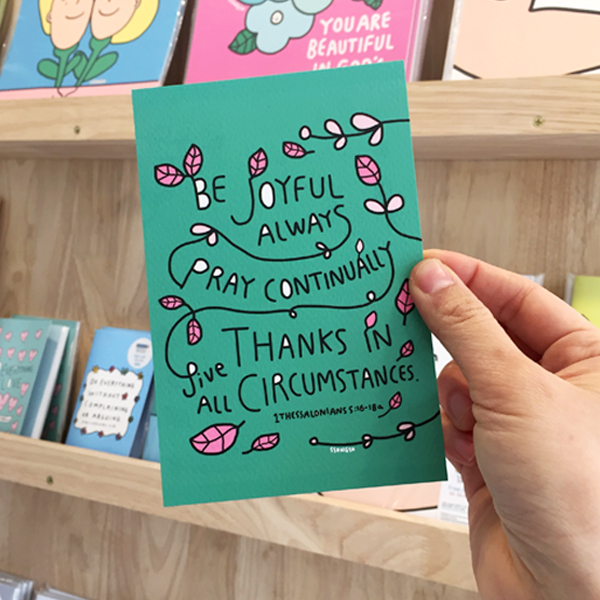 YOU ARE
BEAUTIFUL
IN GOD'S
BE JOYFUL
ALWAYS
PRAY CONTINUALLY
Give THANKS IN
ALL CIRCUMSTANCES.
1 THESSALONIANS 5:16-18a
DO EVERYTHING
WITHOUT
COMPLAINING
OR ARGUING